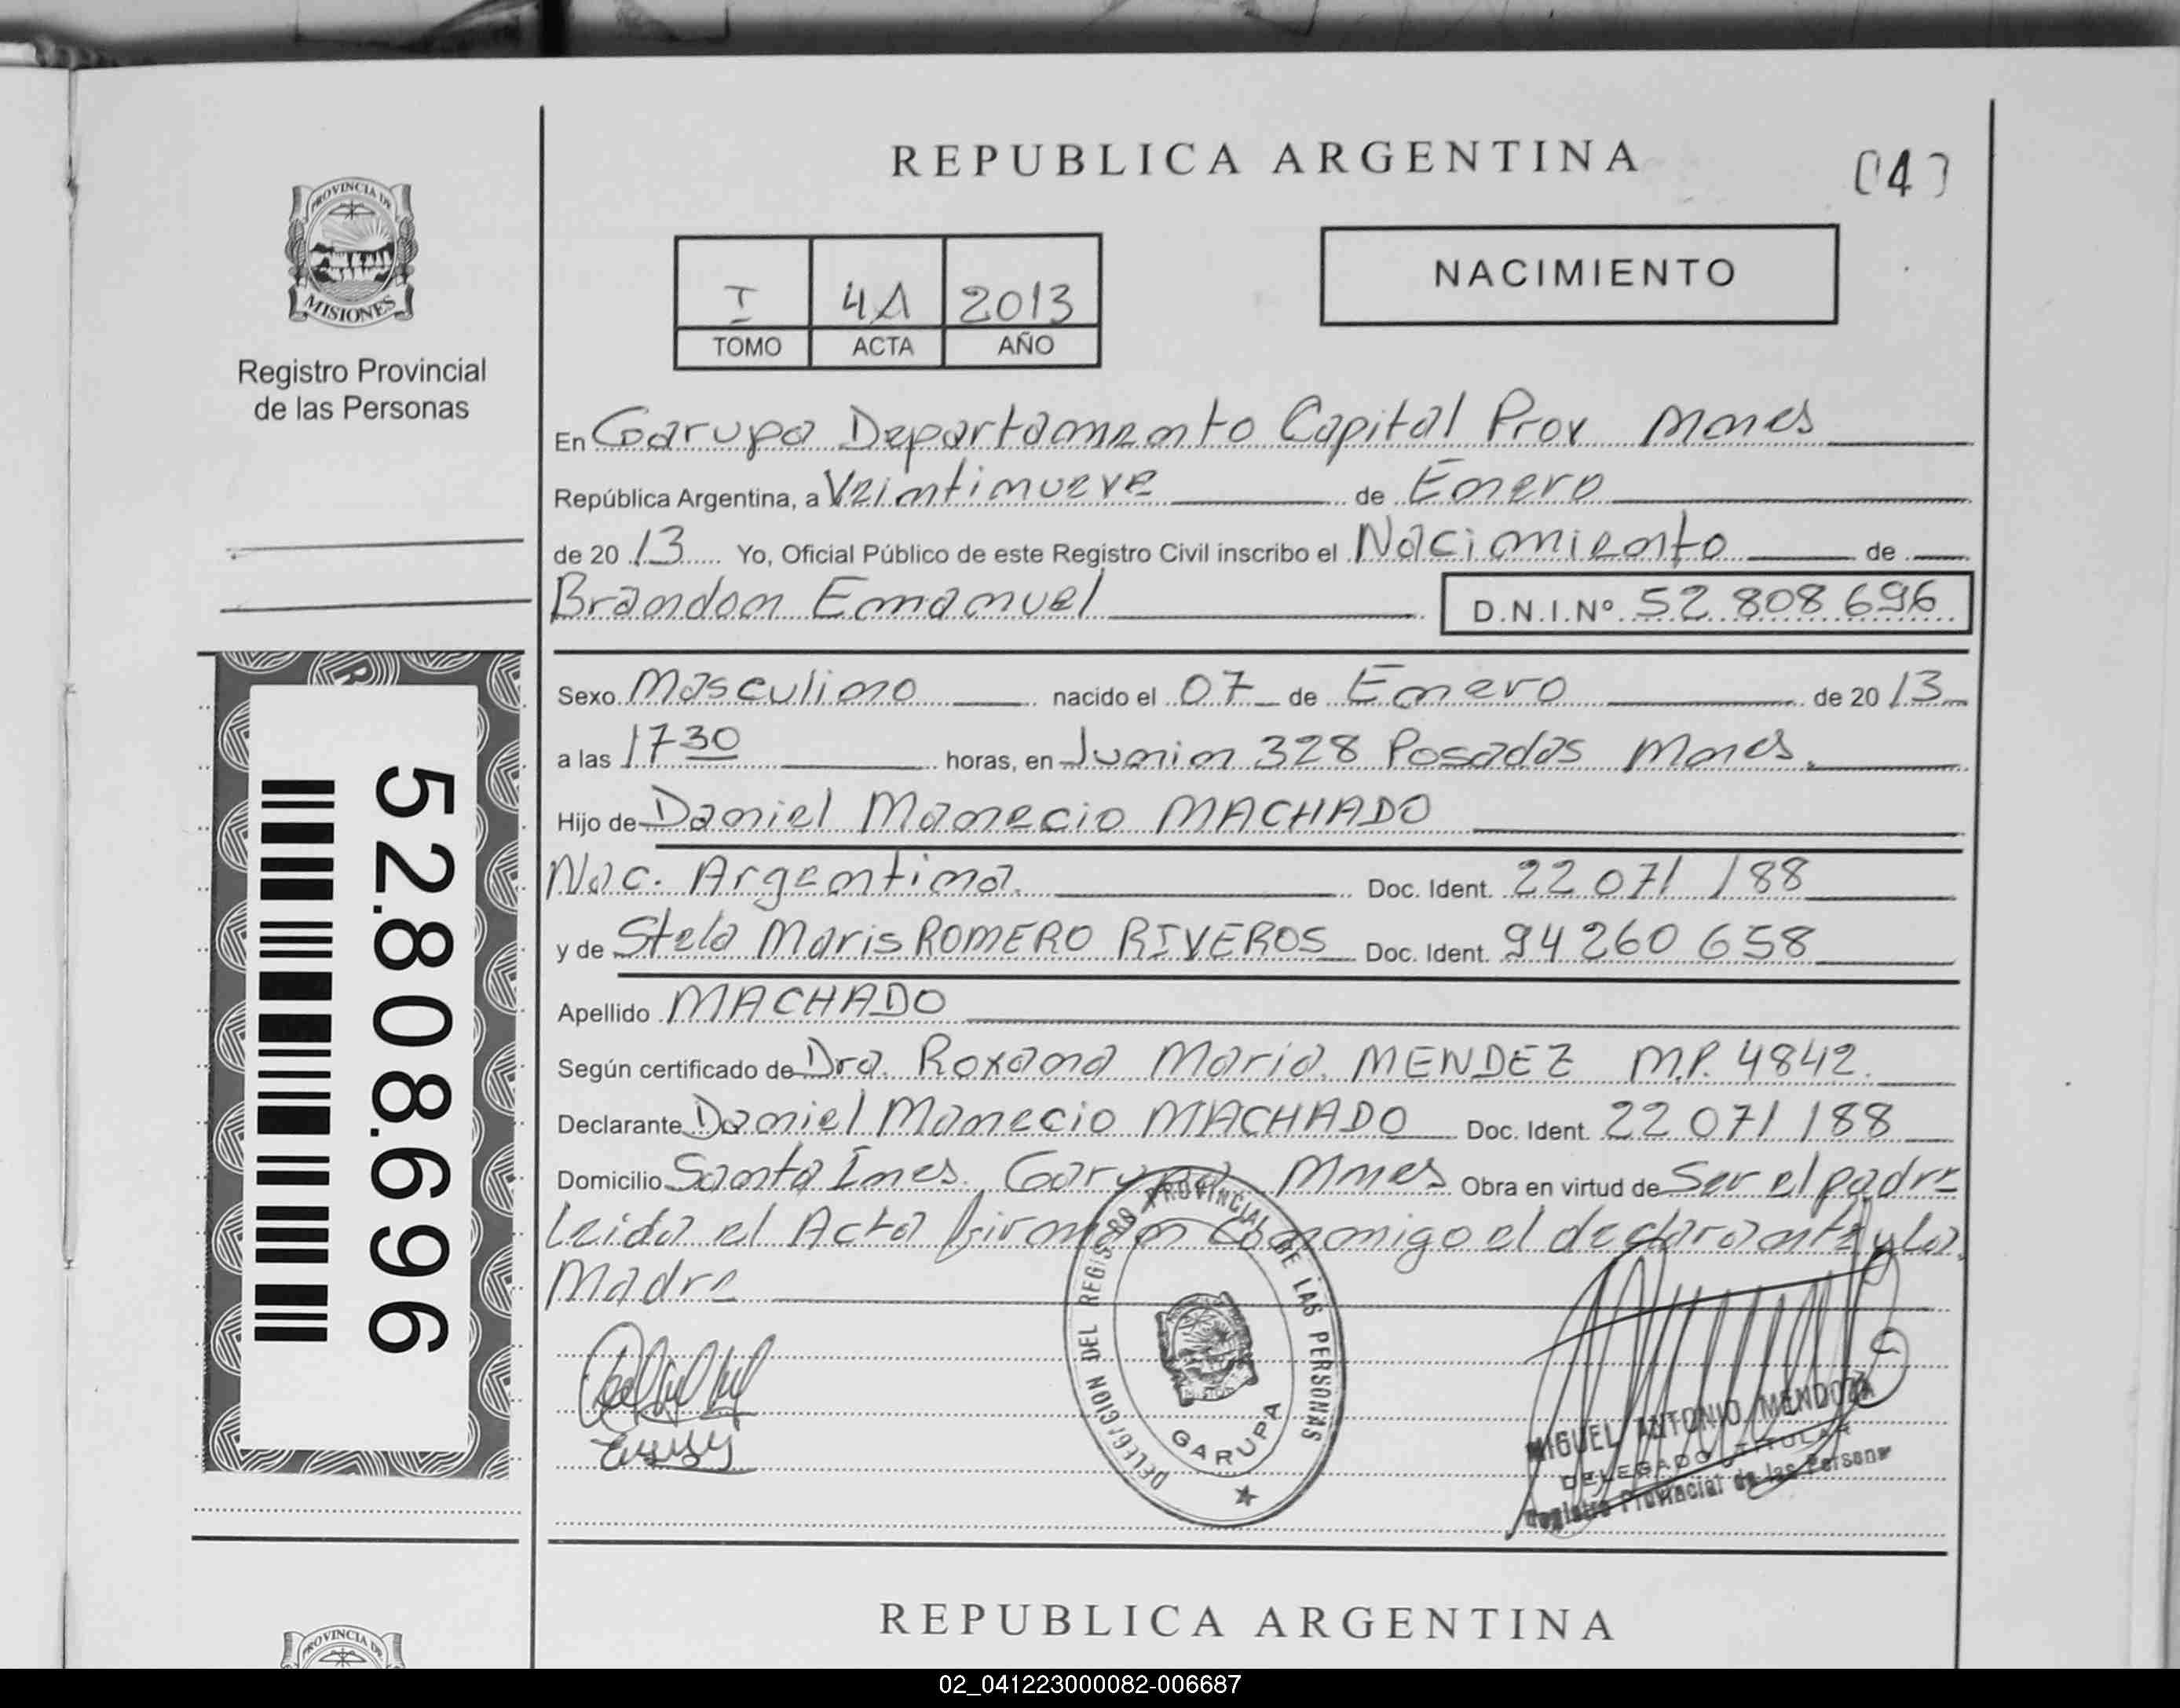 REPUBLICA ARGENTINA
(04)
PROVINCIA DE
MISIONES
Registro Provincial
de las Personas
I 4A 2013
TOMO ACTA AÑO
NACIMIENTO
En Garupa Departamento Capital Prov Mnes
República Argentina, a Veintinueve de Enero
de 20 13 Yo, Oficial Público de este Registro Civil inscribo el Nacimiento de
Brandon Emanuel D.N.I.Nº 52.808.696
Sexo Masculino nacido el 07 de Enero de 20 13
a las 17 30 horas, en Junin 328 Posadas Mnes.
Hijo de Daniel Manecio MACHADO
Nac. Argentina. Doc. Ident. 22 071 188
y de Stela Maris ROMERO RIVEROS Doc. Ident. 94 260 658
Apellido MACHADO
Según certificado de Dra. Roxana Maria. MENDEZ M.P. 4842.
Declarante Daniel Manecio MACHADO Doc. Ident. 22 071 188
Domicilio Santa Ines. Garupa Mnes Obra en virtud de Ser el padre
Leida el Acta firman Conmigo el declarante y La.
Madre
52.808.696
DELEGACION DEL REGISTRO PROVINCIAL DE LAS PERSONAS
GARUPA
MIGUEL ANTONIO MENDOZA
DELEGADO TITULAR
Registro Provincial de las Personas
REPUBLICA ARGENTINA
PROVINCIA DE
02_041223000082-006687